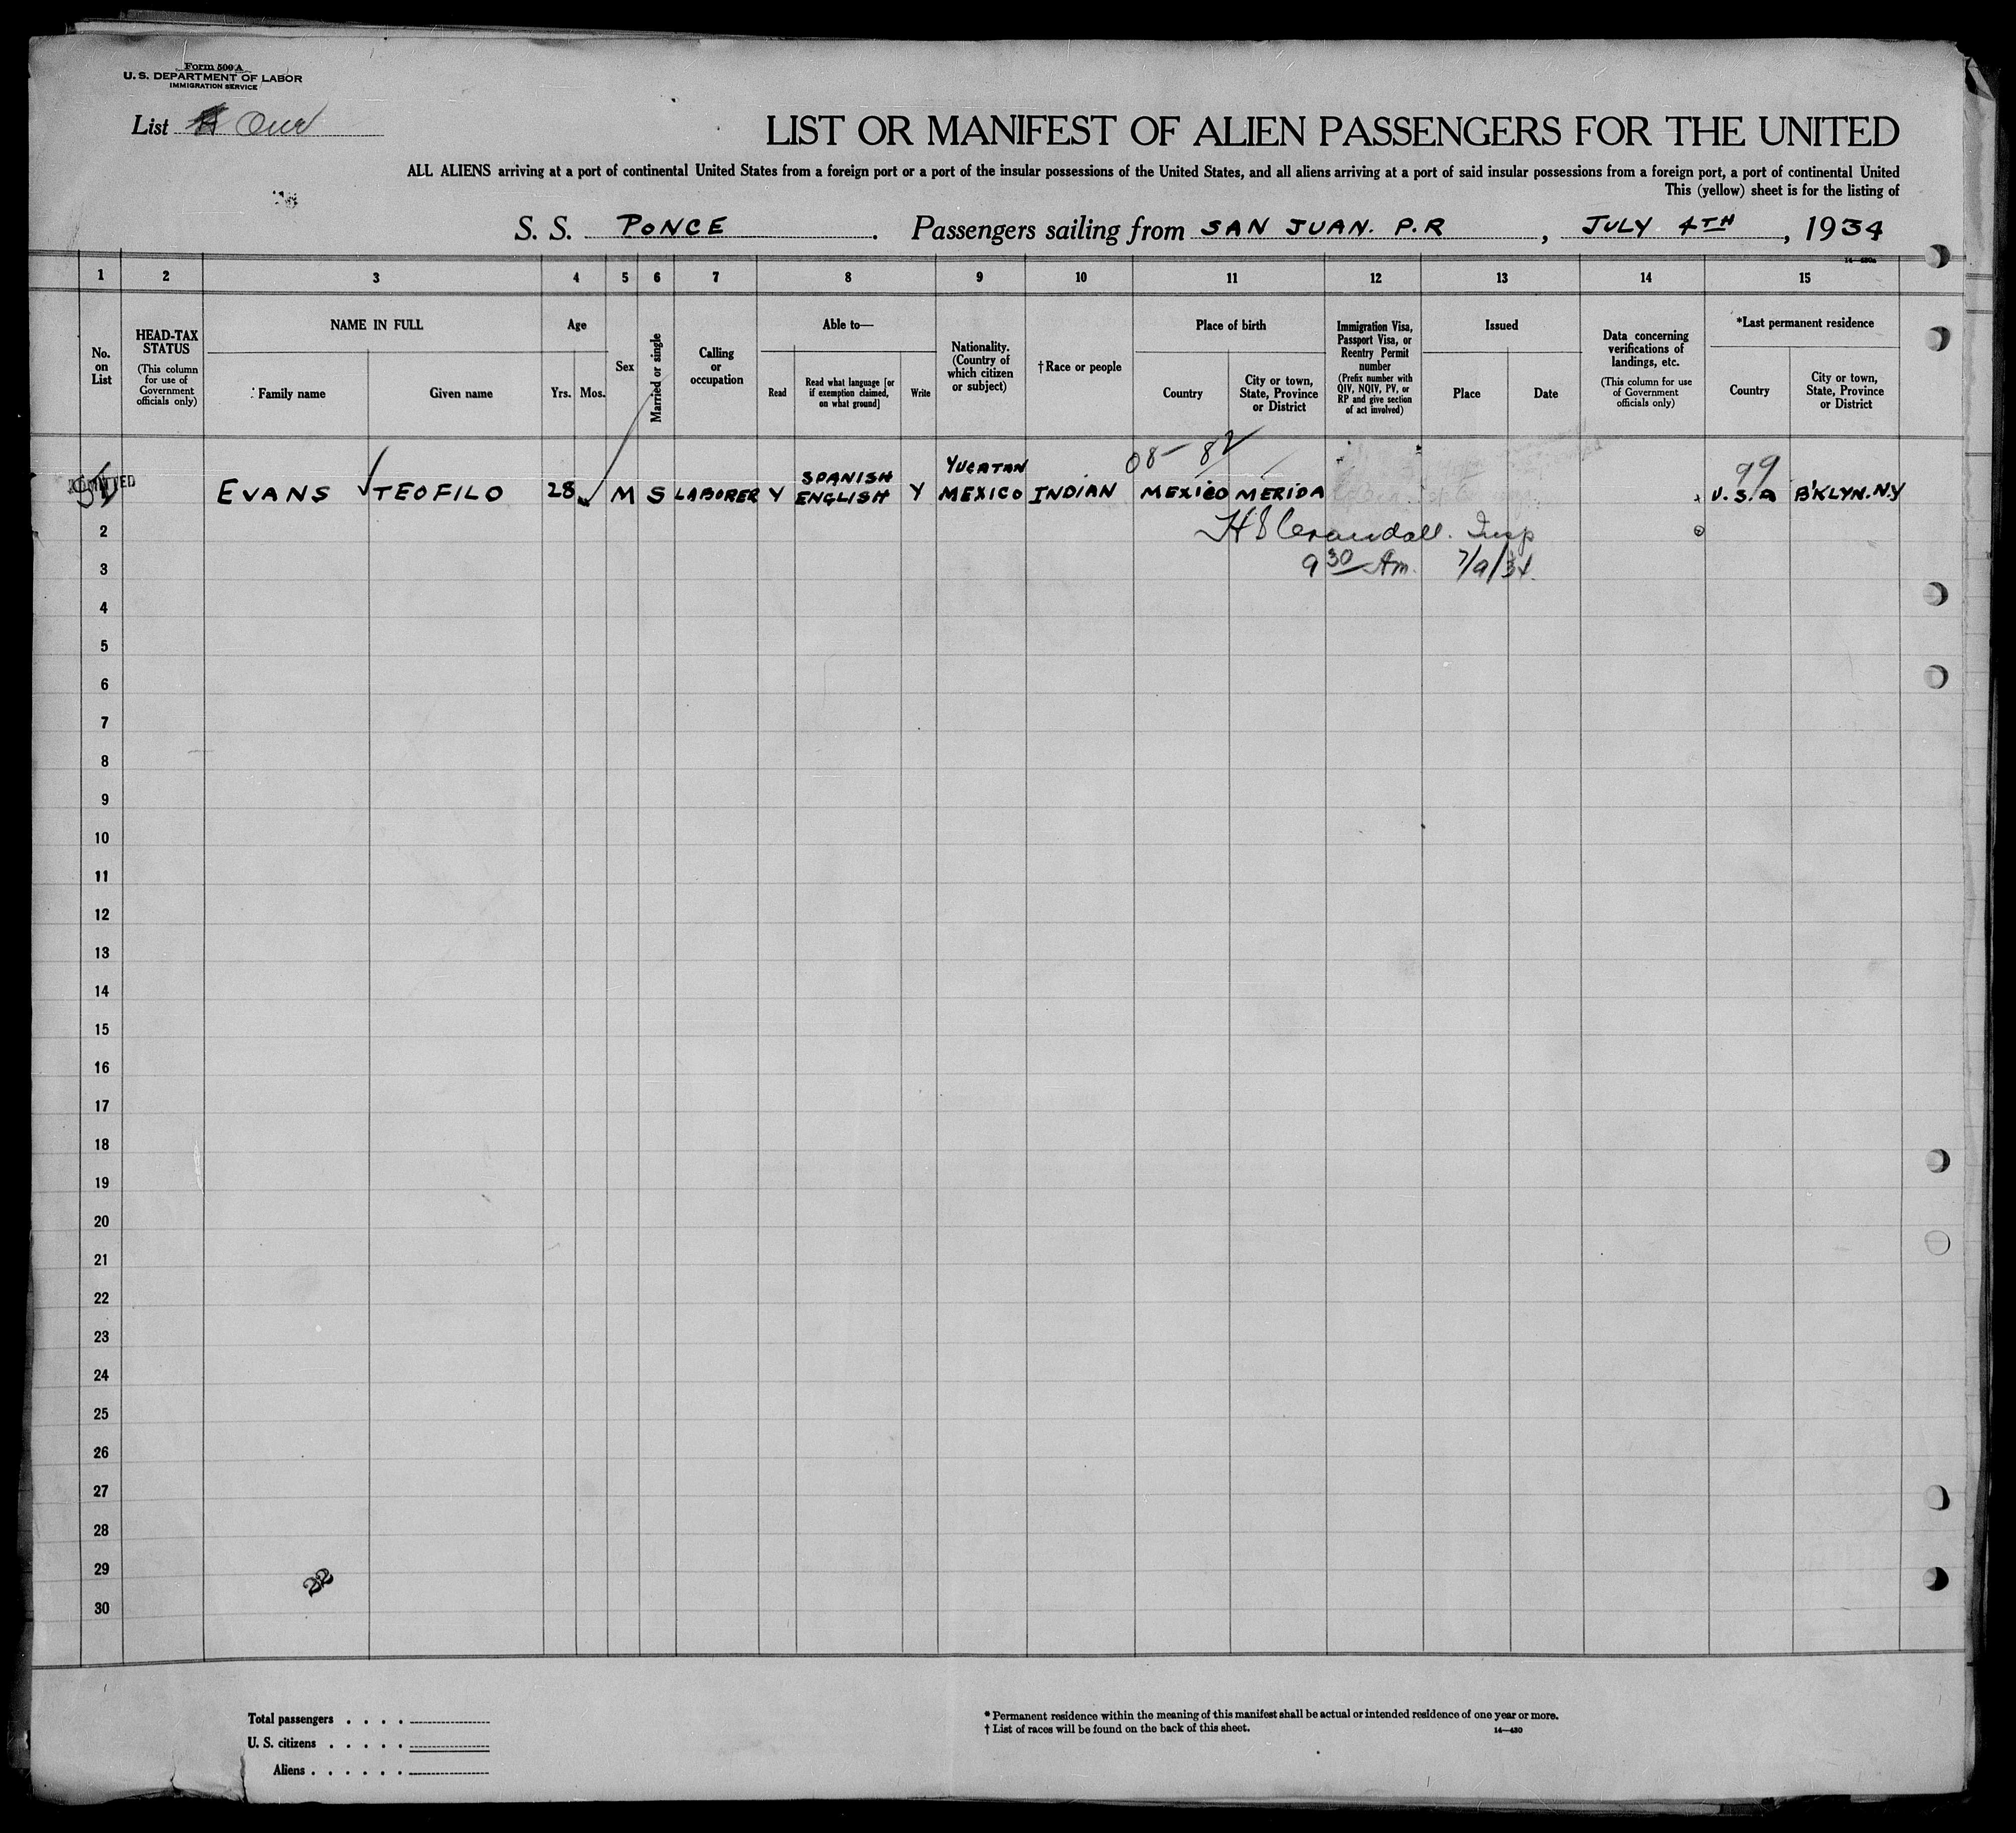 Form 500 A
U. S. DEPARTMENT OF LABOR
IMMIGRATION SERVICE
List One
LIST OR MANIFEST OF ALIEN PASSENGERS FOR THE UNITED
ALL ALIENS arriving at a port of continental United States from a foreign port or a port of the insular possessions of the United States, and all aliens arriving at a port of said insular possessions from a foreign port, a port of continental United
This (yellow) sheet is for the listing of
S. S. PONCE. Passengers sailing from SAN JUAN. P.R, JULY 4TH, 1934
1 2 3 4 5 6 7 8 9 10 11 12 13 14 15
No. on List
HEAD-TAX STATUS
(This column for use of Government officials only)
NAME IN FULL
Family name
Given name
Age
Yrs. Mos.
Sex
Married or single
Calling or occupation
Able to—
Read
Read what language [or if exemption claimed, on what ground]
Write
Nationality. (Country of which citizen or subject)
† Race or people
Place of birth
Country
City or town, State, Province or District
Immigration Visa, Passport Visa, or Reentry Permit number
(Prefix number with QIV, NQIV, PV, or RP and give section of act involved)
Issued
Place
Date
Data concerning verifications of landings, etc.
(This column for use of Government officials only)
*Last permanent residence
Country
City or town, State, Province or District
08- 82
99
ADMITTED EVANS TEOFILO 28 M S LABORER Y SPANISH ENGLISH Y YUCATAN MEXICO INDIAN MEXICO MERIDA U.S.A B'KLYN.N.Y
2 Crandall. Insp
3 9 30 Am. 7/9/34.
4
5
6
7
8
9
10
11
12
13
14
15
16
17
18
19
20
21
22
23
24
25
26
27
28
29
30
22
Total passengers . . . .
U. S. citizens . . . . .
Aliens . . . . . .
* Permanent residence within the meaning of this manifest shall be actual or intended residence of one year or more.
† List of races will be found on the back of this sheet.
14—430